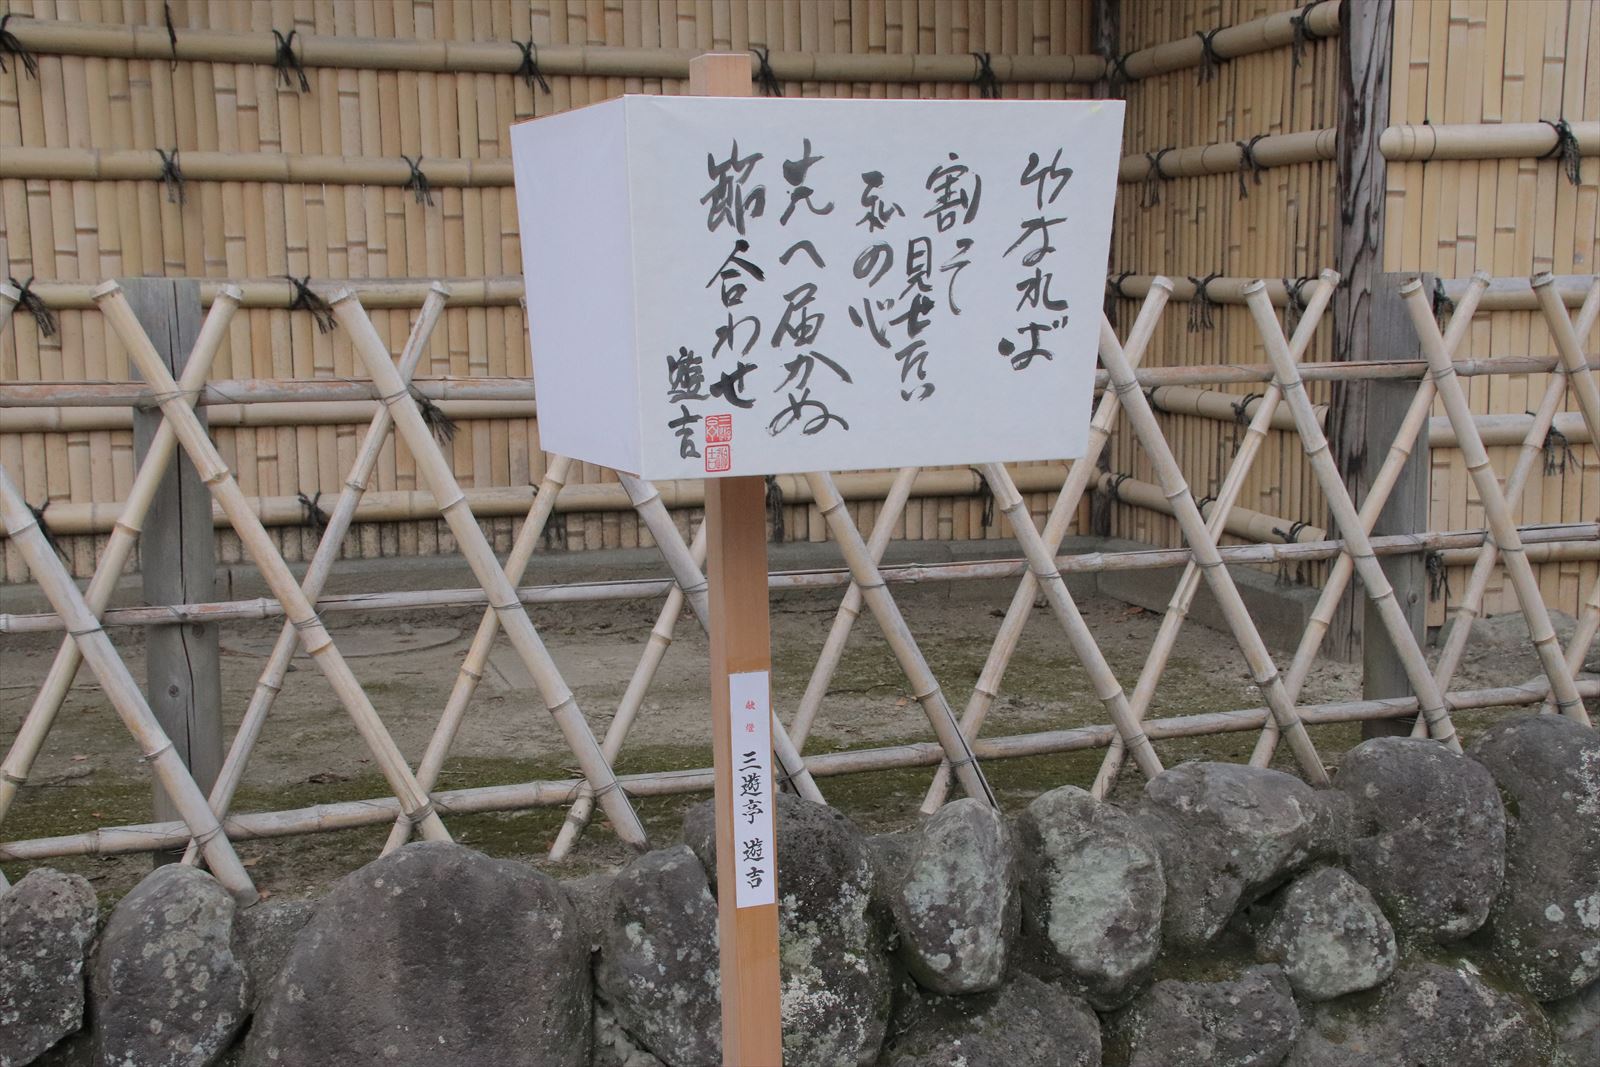 竹なれば
割って
見せたい
私の心
先へ届かぬ
節合わせ
遊吉
献燈
三遊亭 遊吉